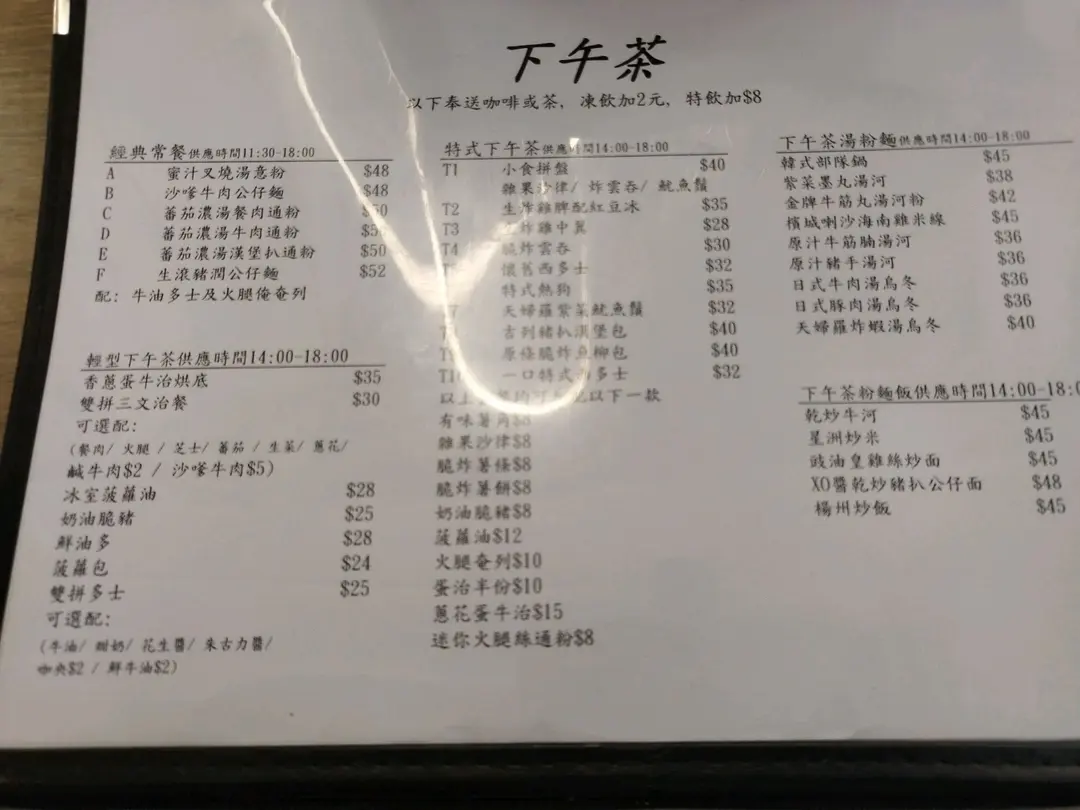 下午茶
以下奉送咖啡或茶, 凍飲加2元, 特飲加$8
經典常餐供應時間11:30-18:00
A 蜜汁叉燒湯意粉 $48
B 沙嗲牛肉公仔麵 $48
C 蕃茄濃湯餐肉通粉
D 蕃茄濃湯牛肉通粉
E 蕃茄濃湯漢堡扒通粉 $50
F 生滾豬潤公仔麵 $52
配: 牛油多士及火腿俺奄列
輕型下午茶供應時間14:00-18:00
香蔥蛋牛治烘底 $35
雙拼三文治餐 $30
可選配:
(餐肉/ 火腿 / 芝士/ 蕃茄 / 生菜/ 蔥花/
鹹牛肉$2 / 沙嗲牛肉$5)
冰室菠蘿油 $28
奶油脆豬 $25
鮮油多 $28
菠蘿包 $24
雙拼多士 $25
可選配:
(牛油/ 甜奶/ 花生醬/ 朱古力醬/
咖央$2 / 鮮牛油$2)
特式下午茶供應時間14:00-18:00
T1 小食拼盤 $40
雜果沙律/ 炸雲吞/ 魷魚鬚
T2 生炸雞髀配紅豆冰 $35
T3 炸雞中翼 $28
T4 脆炸雲吞 $30
懷舊西多士 $32
特式熱狗 $35
天婦羅紫菜魷魚鬚 $32
吉列豬扒漢堡包 $40
原條脆炸魚柳包 $40
一口特式西多士 $32
以上 以下一款
有味薯角$8
雜果沙律$8
脆炸薯條$8
脆炸薯餅$8
奶油脆豬$8
菠蘿油$12
火腿奄列$10
蛋治半份$10
蔥花蛋牛治$15
迷你火腿絲通粉$8
下午茶湯粉麵供應時間14:00-18:00
韓式部隊鍋 $45
紫菜墨丸湯河 $38
金牌牛筋丸湯河粉 $42
檳城喇沙海南雞米線 $45
原汁牛筋腩湯河 $36
原汁豬手湯河 $36
日式牛肉湯烏冬 $36
日式豚肉湯烏冬 $36
天婦羅炸蝦湯烏冬 $40
下午茶粉麵飯供應時間14:00-18:0
乾炒牛河 $45
星洲炒米 $45
豉油皇雞絲炒面 $45
XO醬乾炒豬扒公仔面 $48
楊州炒飯 $45